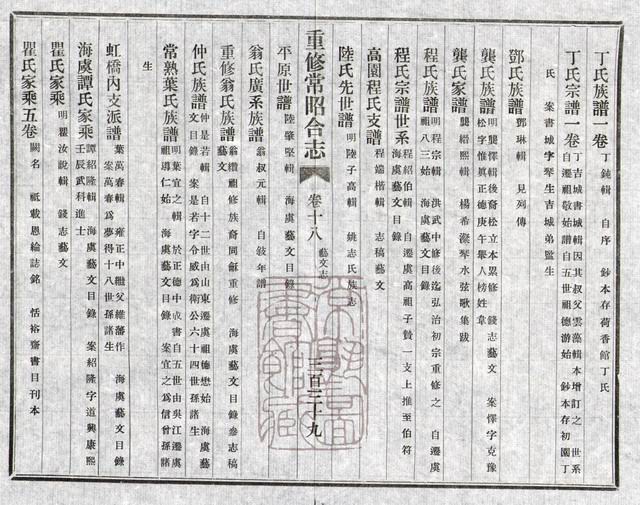 丁氏族譜一卷 丁鈍輯 自序 鈔本存荷香館丁氏
丁氏宗譜一卷 丁吉城書城輯因其叔父雲藻輯本增訂之 世系
自遷祖敬始譜自五世祖德游始 鈔本存初園丁
氏 案書城字琴生吉城弟監生
鄧氏族譜 鄧琳輯 見列傳
龔氏族譜 明龔憚輯後裔松立本累修 錢志藝文 案憚字克豫
松字惟眞正德庚午舉人榜姓章
龔氏家譜 龔縉熙輯 楊希濴琴水弦歌集跋
程氏族譜 明程宗輯 洪武中修後迄弘治初宗重修之 自遷虞
祖八三始 海虞藝文目錄
程氏宗譜世系 程紹伯輯 自遷虞高祖子贊一支上推至伯符
海虞藝文目錄
高園程氏支譜 程端楷輯 志稿藝文
陸氏先世譜 明陸子高輯 姚志氏族志
重修常昭合志 卷十八 藝文志 三百三十九
平原世譜 陸肇堅輯 海虞藝文目錄
翁氏廣系族譜 翁叔元輯 自敘年譜
重修翁氏族譜 翁纘祖修族裔同龢重修 海虞藝文目錄叁志稿
藝文
仲氏族譜 仲是若輯 自十二世由山東遷虞祖德懋始 海虞藝
文目錄 案是若字令威爲衛公六十四世孫諸生
常熟葉氏族譜 明葉宜之輯 於正德中成書自五世由吳江遷虞
祖導仁始 海虞藝文目錄 案宜之爲信曾孫諸
生
虹橋內支派譜 葉萬春輯 雍正中繼父維藩作 海虞藝文目錄
案萬春爲夢得十八世孫諸生
海虞譚氏家乘 譚紹隆輯 海虞藝文目錄 案紹隆字道興康熙
壬辰武科進士
瞿氏家乘 明瞿汝說輯 錢志藝文
瞿氏家乘五卷 闕名 祗載恩綸誌銘 恬裕齋書目刊本